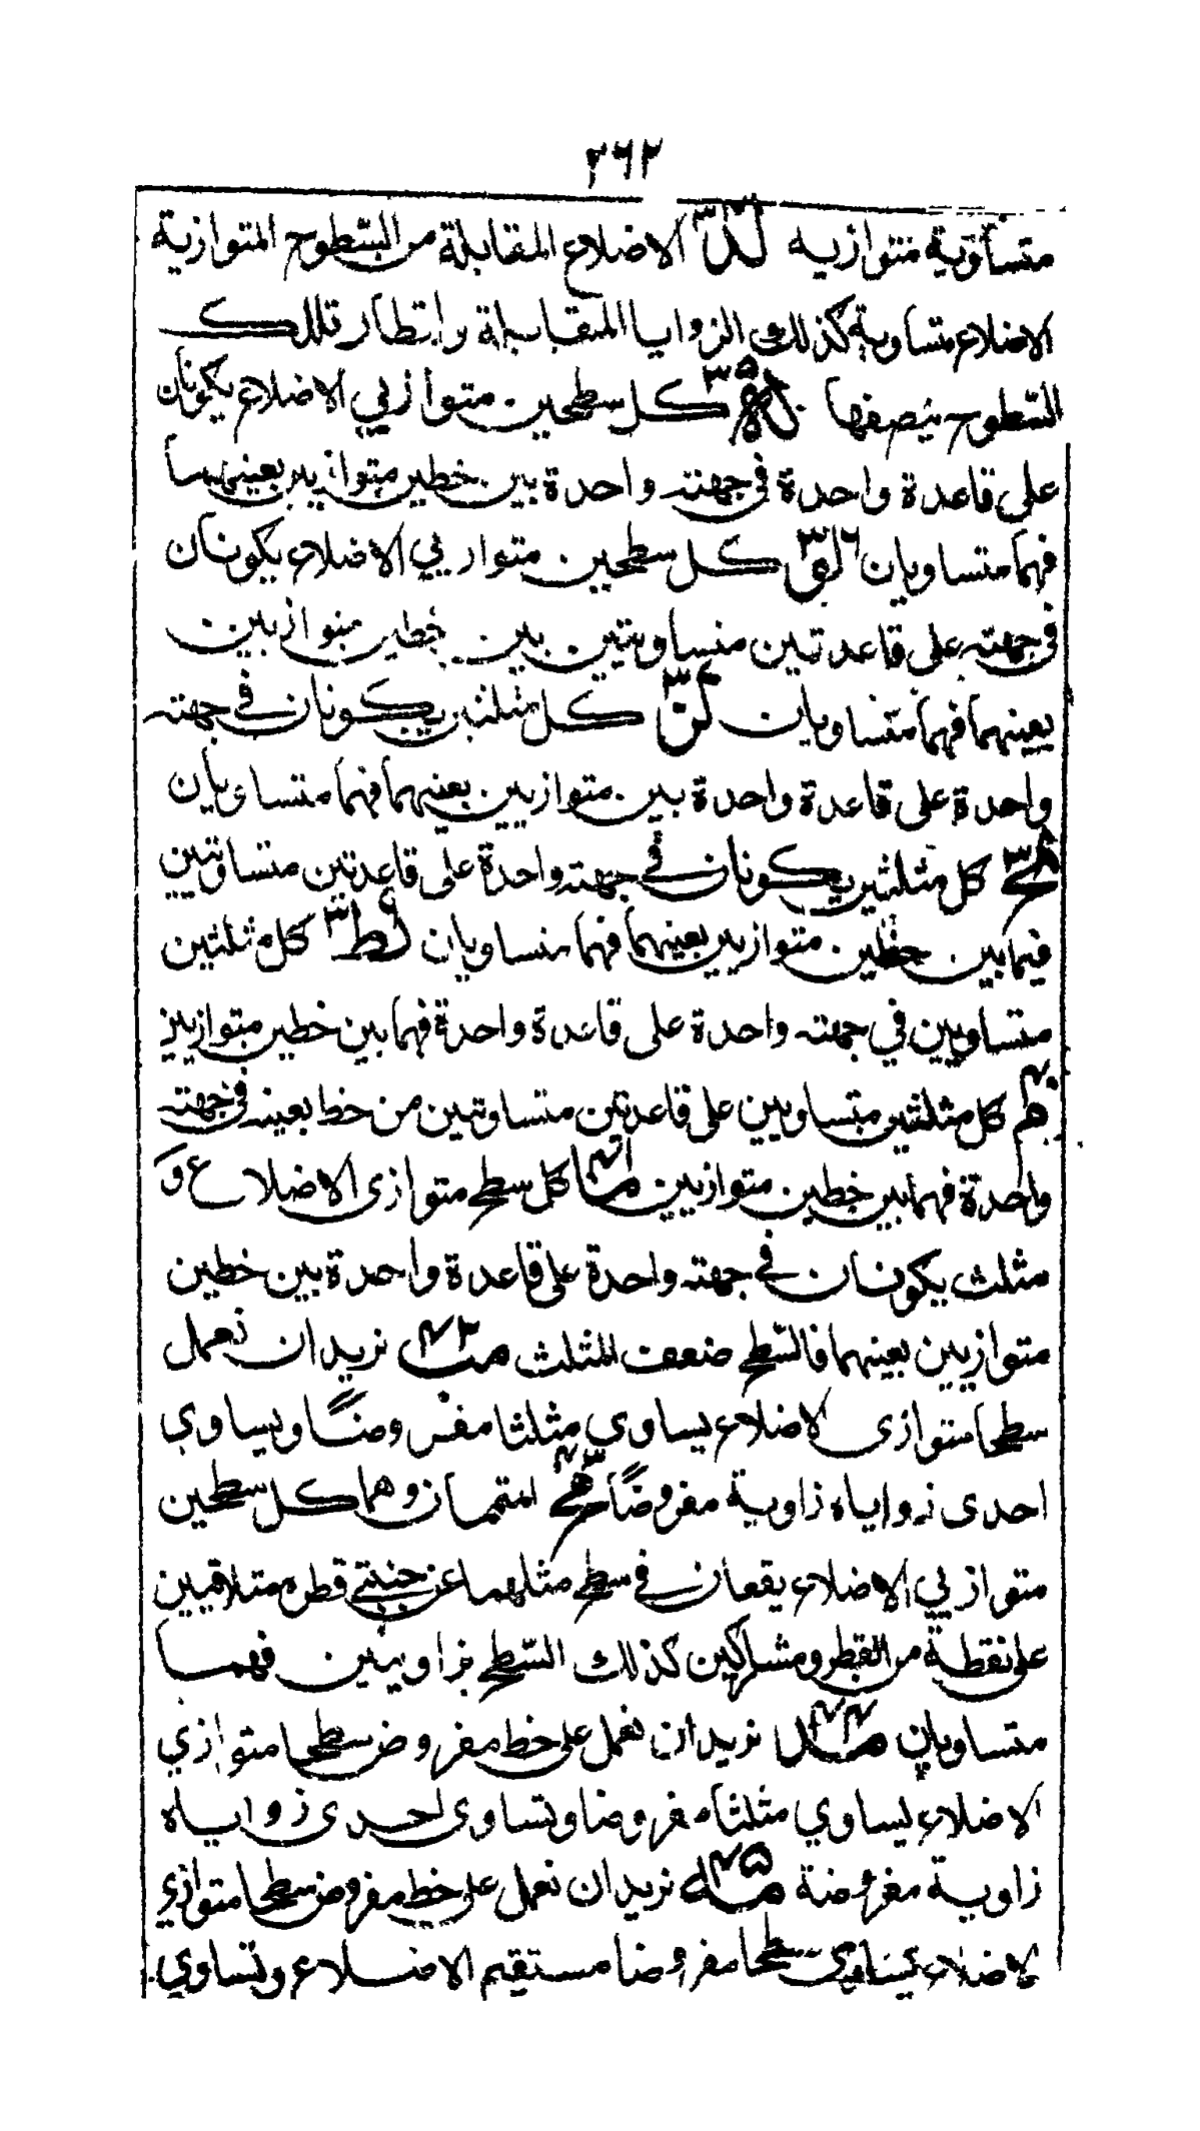 ٢٦٢
متساوية متوازيه لد٣٤ الاضلاع المتقابلة من السّطوح المتوازية
الاضلاع متساوية كذلك الزوايا المتقابلة واقطار تلك
السّطوح ينصفها له٣٥ كل سطحين متوازيي الاضلاع يكونان
على قاعدة واحدة في جهته واحدة بين خطين متوازيين بعينهما
فهما متساويان لو٣٦ كل سطحين متوازيي الاضلاع يكونان
في جهته على قاعدتين متساويتين بين خطين متوازيين
بعينهما فهما متساويان لز٣٧ كل مثلثين يكونان في جهته
واحدة على قاعدة واحدة بين متوازيين بعينهما فهما متساويان
لح٣٨ كل مثلثين يكونان في جهته واحدة على قاعدتين متساويتين
فيما بين خطين متوازيين بعينهما فهما متساويان لط٣٩ كل مثلثين
متساويين في جهته واحدة على قاعدة واحدة فهما بين خطين متوازيين
م٤٠ كل مثلثين متساويين على قاعدتين متساويتين من خط بعينه في جهته
واحدة فهما بين خطين متوازيين ما٤١ كل سطح متوازى الاضلاع و
مثلث يكونان في جهته واحدة على قاعدة واحدة بين خطين
متوازيين بعينهما فالسّطح ضعف المثلث مب٤٢ نريد ان نعمل
سطحا متوازى الاضلاع يساوي مثلثا مفروضًا ويساوي
احدى زواياه زاوية مفروضًا مح٤٣ المتممان وهما كل سطحين
متوازيي الاضلاع يقعان في سطح مثلهما عن جنبتي قطره متلاقيين
على نقطة من القطر ومشاركين كذلك السّطح بزاويتين فهما
متساويان مد٤٤ نريد ان نعمل على خط مفروض سطحا متوازي
الاضلاع يساوي مثلثا مفروضا وتساوى احدى زواياه
زاوية مفروضة مه٤٥ نريد ان نعمل على خط مفروض سطحا متوازي
الاضلاع يساوى سطحا مفروضا مستقيم الاضلاع وتساوي